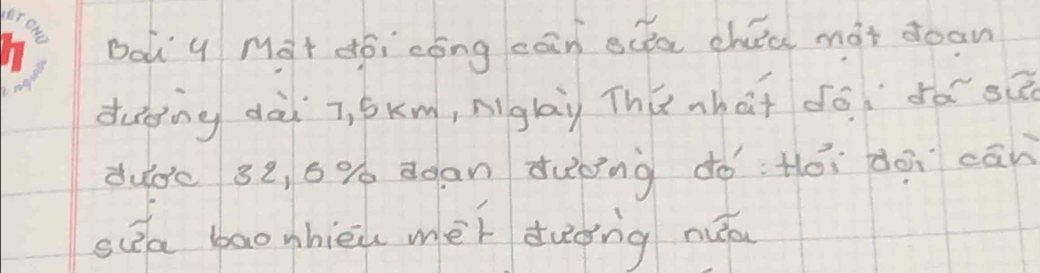 Bài 4 Một đội công cần sữa chữa một đoạn
đường dài 7,5km, Ngày Thứ nhất đội đã sữa
được 32,5% đoạn đường đó: Hỏi đội cần
sữa bao nhiêu mét đường nữa